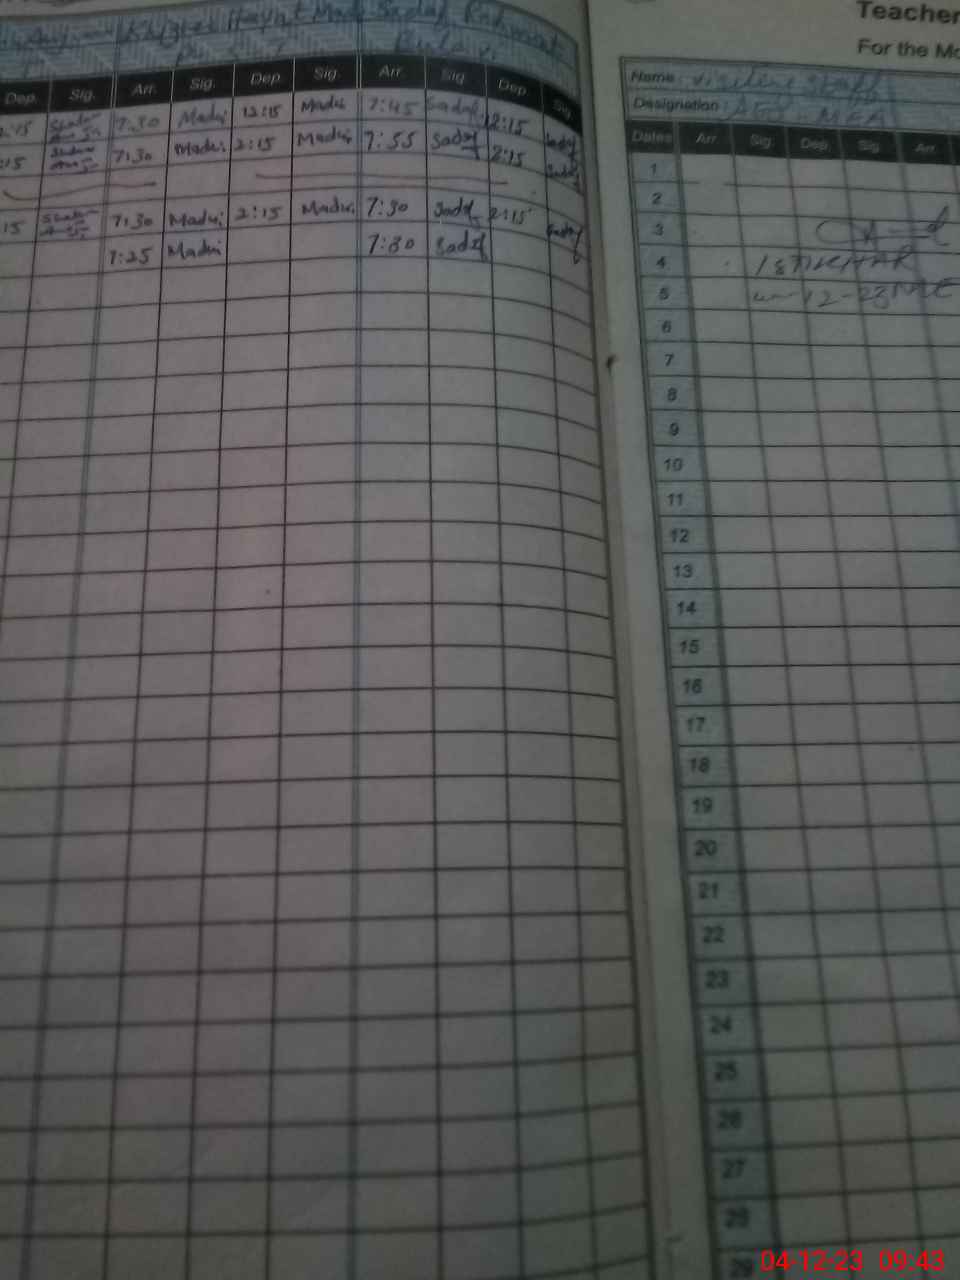 Hayat Madi Sadaf Rahmat
Dep. Sig. Arr. Sig. Dep. Sig. Arr. Sig. Dep. Sig.
2:15 7:30 Madi 12:15 Madi 7:45 Sadaf 12:15 Sadaf
:15 7:30 Madi 2:15 Madi 7:55 Sadaf 2:15 Sadaf
15 7:30 Madi 2:15 Madi 7:30 Sadaf 2:15 Sadaf
7:25 Madi 7:30 Sadaf
Teacher
For the Mo
Name: Visiting Staff
Designation:
Dates Arr. Sig. Dep. Sig. Arr.
1
2
3
4 IFTIKHAR
5 12-23
6
7
8
9
10
11
12
13
14
15
16
17
18
19
20
21
22
23
24
25
26
27
28
29
04-12-23 09:43